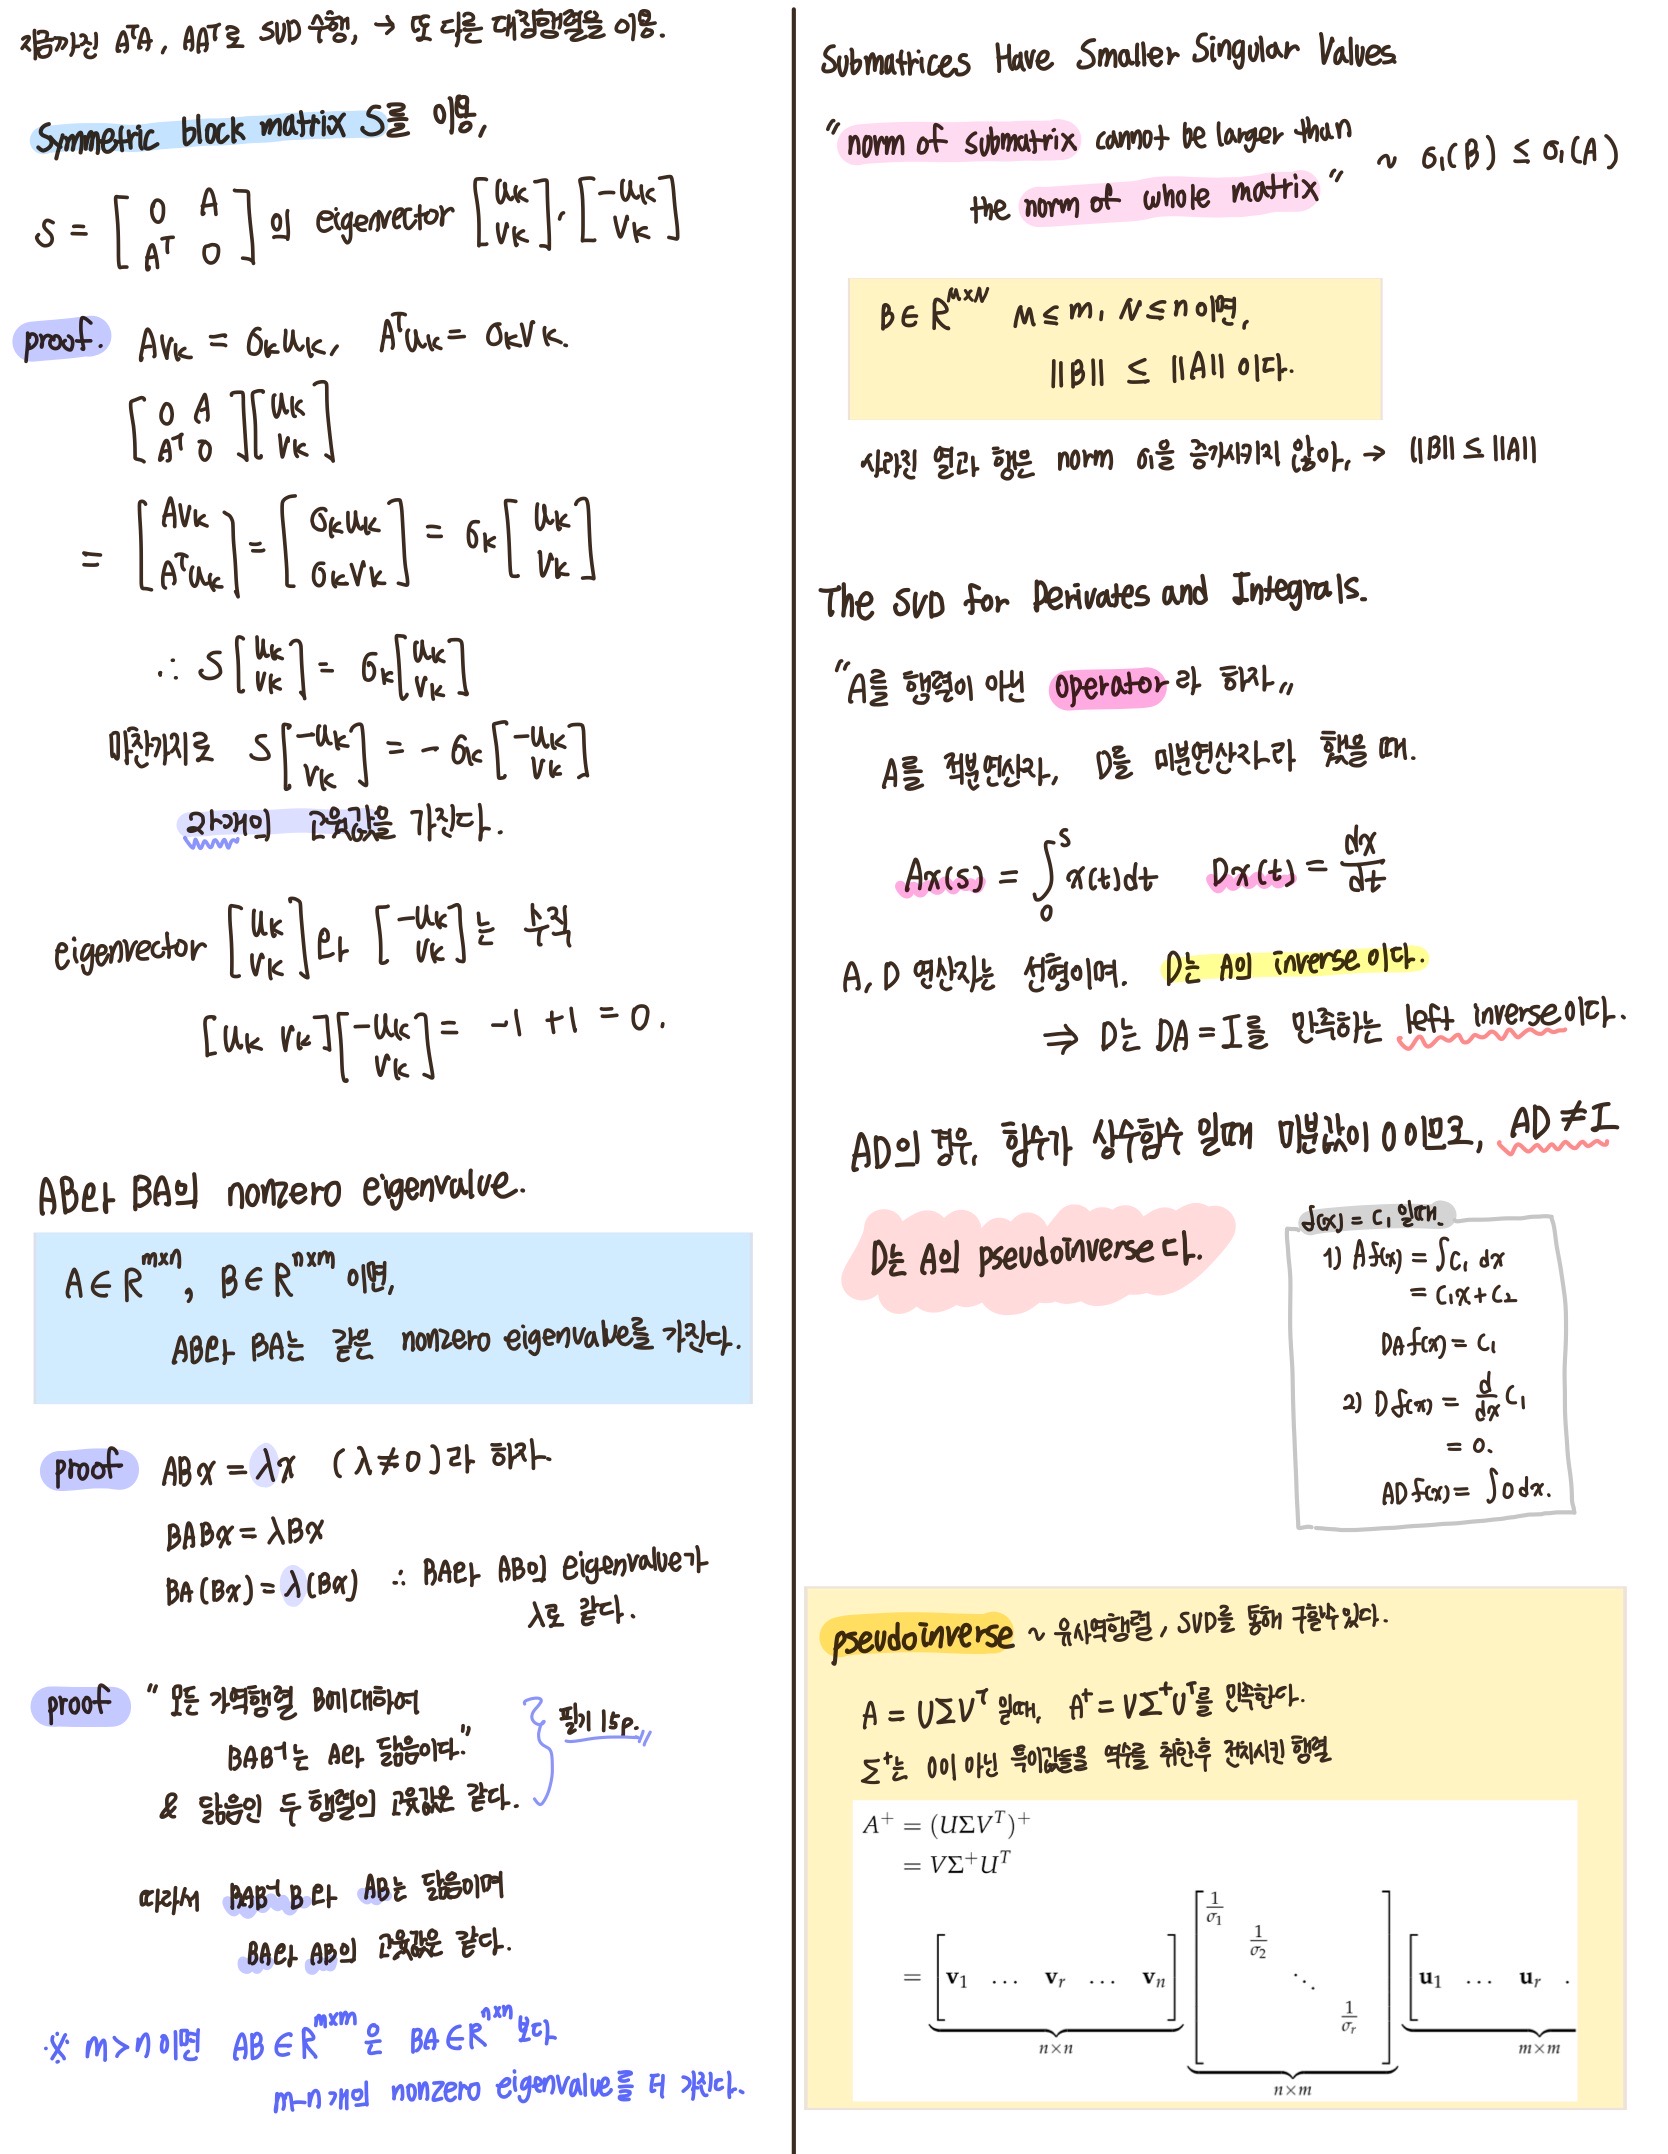 지금까진 AᵀA, AAᵀ로 SVD 수행, → 또 다른 대칭행렬을 이용.
Symmetric block matrix S를 이용,
S = [0 A; Aᵀ 0] 의 eigenvector [uₖ; vₖ], [-uₖ; vₖ]
proof. Avₖ = σₖuₖ, Aᵀuₖ = σₖvₖ.
[0 A; Aᵀ 0][uₖ; vₖ]
= [Avₖ; Aᵀuₖ] = [σₖuₖ; σₖvₖ] = σₖ[uₖ; vₖ]
∴ S[uₖ; vₖ] = σₖ[uₖ; vₖ]
마찬가지로 S[-uₖ; vₖ] = -σₖ[-uₖ; vₖ]
고윳값을 가진다.
eigenvector [uₖ; vₖ]와 [-uₖ; vₖ]는 수직
[uₖ vₖ][-uₖ; vₖ] = -1 +1 = 0.
AB와 BA의 nonzero eigenvalue.
A∈R^{m×n}, B∈R^{n×m} 이면,
AB와 BA는 같은 nonzero eigenvalue를 가진다.
proof ABx = λx (λ≠0)라 하자.
BABx = λBx
BA(Bx) = λ(Bx) ∴ BA와 AB의 eigenvalue가
λ로 같다.
proof " 모든 가역행렬 B에 대하여
BAB⁻¹는 A와 닮음이다."
& 닮음인 두 행렬의 고윳값은 같다.
필기 15p.
따라서 BAB⁻¹B와 AB는 닮음이며
BA와 AB의 고윳값은 같다.
※ m>n이면 AB∈R^{m×m}은 BA∈R^{n×n}보다
m-n개의 nonzero eigenvalue를 더 가진다.
Submatrices Have Smaller Singular Values
"norm of submatrix cannot be larger than
the norm of whole matrix" ~ σ₁(B) ≤ σ₁(A)
B∈R^{M×N} M≤m, N≤n이면,
||B|| ≤ ||A|| 이다.
사라진 열과 행은 norm σ₁을 증가시키지 않아, → ||B|| ≤ ||A||
The SVD for Derivates and Integrals.
"A를 행렬이 아닌 operator라 하자"
A를 적분연산자, D를 미분연산자라 했을 때.
Ax(s) = ∫₀ˢ x(t)dt Dx(t) = dx/dt
A, D 연산자는 선형이며. D는 A의 inverse이다.
⇒ D는 DA = I를 만족하는 left inverse이다.
AD의 경우, 함수가 상수함수 일때 미분값이 0이므로, AD ≠ I
D는 A의 pseudoinverse다.
f(x) = C₁ 일때.
1) Af(x) = ∫C₁ dx
= C₁x + C₂
DAf(x) = C₁
2) Df(x) = d/dx C₁
= 0.
ADf(x) = ∫0dx.
pseudoinverse ~ 유사역행렬, SVD를 통해 구할수있다.
A = UΣVᵀ 일때, A⁺ = VΣ⁺Uᵀ를 만족한다.
Σ⁺는 0이 아닌 특이값들을 역수를 취한후 전치시킨 행렬
A⁺ = (UΣVᵀ)⁺
= VΣ⁺Uᵀ
= [v₁ … vᵣ … vₙ] [1/σ₁ 1/σ₂ ⋱ 1/σᵣ] [u₁ … uᵣ .
n×n n×m m×m